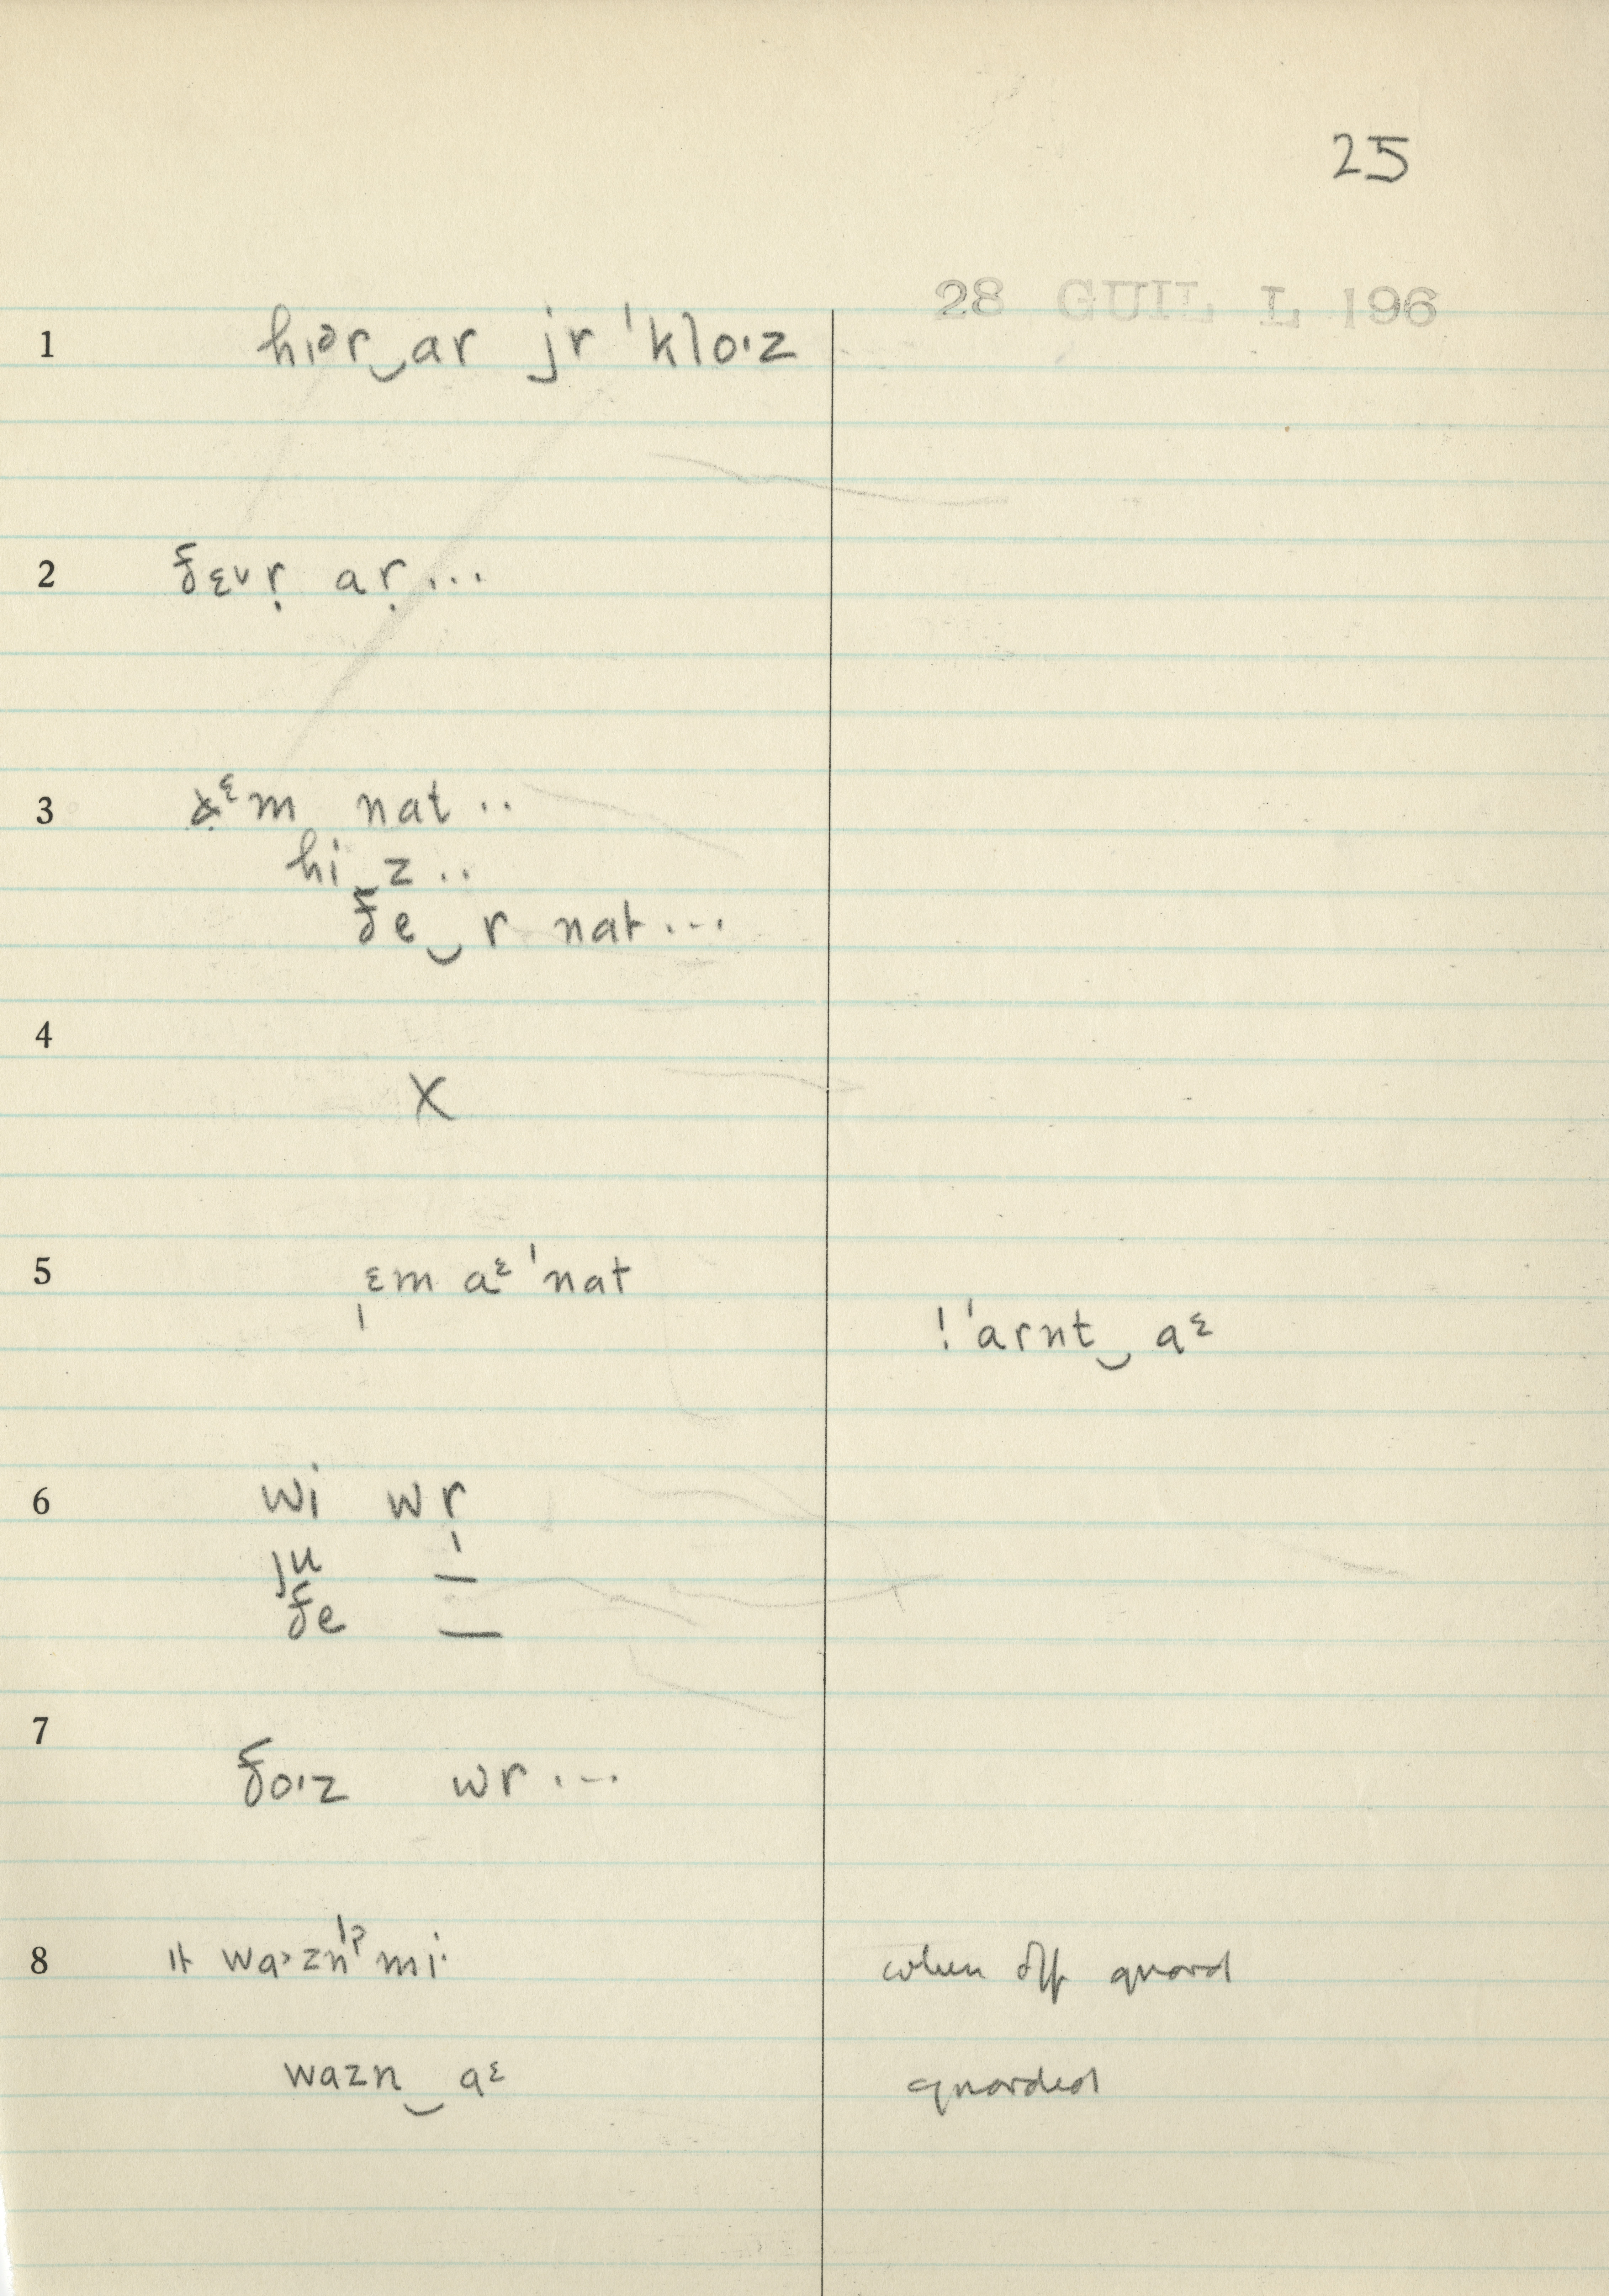 25
28 GUIL L 196
1 hiər‿ar jr ˈkloˑz
2 ðɛvr̩ ar̩...
3 aᵋm nat..
hi‿z..
ðe‿r nat...
4 X
5 ɛm aᵋ ˈnat
! ˈarnt‿aᵋ
6 wi wr̩
ju —
ðe —
7 ðoˑz wr...
8 ɪt waˑzn̩ˈʔmiˑ when off guard
wazn‿aᵋ guarded